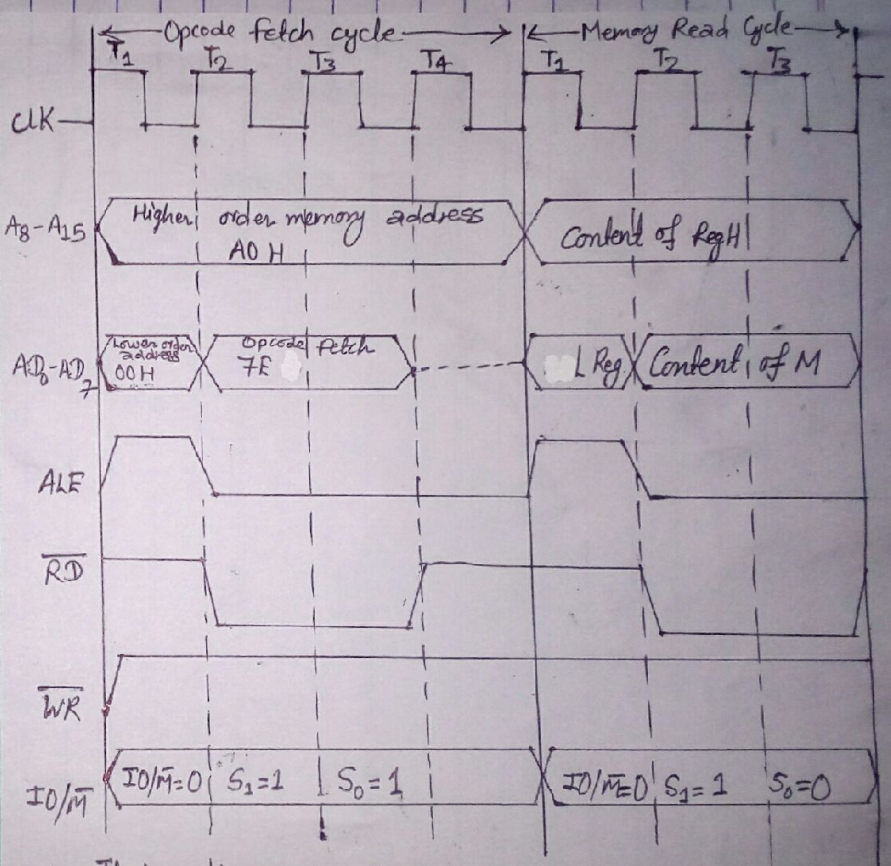 Opcode fetch cycle Memory Read Cycle
T1 T2 T3 T4 T1 T2 T3
CLK
A8-A15 Higher order memory address Content of Reg H
A0 H
AD0-AD7 Lower order address 00H Opcode fetch 7E L Reg Content of M
ALE
R̅D̅
W̅R̅
IO/M̅ IO/M̅=0 S1=1 S0=1 IO/M̅=0 S1=1 S0=0